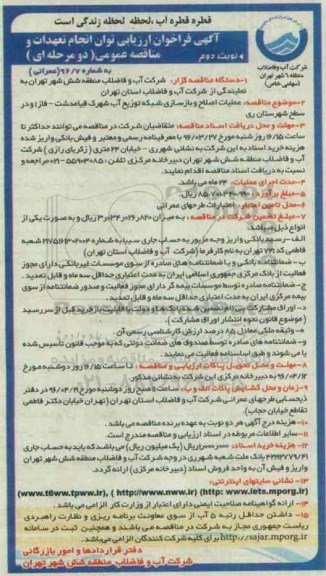 قطره قطره آب، لحظه لحظه زندگی است
آگهی فراخوان ارزیابی توان انجام تعهدات و
مناقصه عمومی (دو مرحله ای)
نوبت دوم
به شماره ۹۶/۷ (عمرانی)
شرکت آب و فاضلاب
منطقه ۶ شهر تهران
(سهامی خاص)
۱-دستگاه مناقصه گزار: شرکت آب و فاضلاب منطقه شش شهر تهران به
نمایندگی از شرکت آب و فاضلاب استان تهران
۲-موضوع مناقصه: عملیات اصلاح و بازسازی شبکه توزیع آب شهرک قیامدشت - فاز ۱ و در
سطح شهرستان ری
۳-مهلت و محل دریافت اسناد مناقصه: متقاضیان شرکت در مناقصه می توانند حداکثر تا
ساعت ۱۶/۱۵ روز شنبه مورخ ۹۶/۰۳/۲۷ با معرفینامه رسمی و معتبر و فیش بانکی واریز شده
هزینه خرید اسناد به این شرکت به نشانی شهرری - خیابان ۲۴ متری (زکریای رازی) شرکت
آب و فاضلاب منطقه شش شهر تهران دبیرخانه مرکزی تلفن: مراجعه و
نسبت به دریافت اسناد مناقصه اقدام نمایند.
۴-مدت اجرای عملیات: ۲۴ ماه می باشد.
۵-مبلغ برآورد: ریال
۶-محل تامین اعتبار: اعتبارات طرحهای عمرانی
۷-مبلغ تضمین شرکت در مناقصه: به میزان ریال و به صورت یکی از
انواع ذیل میباشد.
الف-رسید بانکی واریز وجه مزبور به حساب جاری سیبا به شماره شعبه
فاطمی کد ۷۷۱ تهران به نام کارفرما (شرکت آب و فاضلاب استان تهران)
ب-ضمانتنامه بانکی و یا ضمانتنامه های صادره از سوی موسسات غیربانکی دارای مجوز
فعالیت از بانک مرکزی جمهوری اسلامی ایران به مدت اعتباری حداقل سه ماه و قابل تمدید.
ج-ضمانتنامه صادره توسط موسسات بیمه گر دارای مجوز فعالیت و صدور ضمانتنامه از سوی
بیمه مرکزی ایران به مدت اعتباری حداقل سه ماه و قابل تمدید.
د-اوراق مشارکت بی نام تضمین شده بانک ها و دولت با قابلیت بازخرید قبل از سررسید
(موضوع قانون نحوه انتشار اوراق مشارکت).
ه-وثیقه ملکی معادل ۸۵ درصد ارزش کارشناسی رسمی آن.
و-ضمانتنامه های صادره توسط صندوق های ضمانت دولتی که به موجب قانون تاسیس شده
یا می شوند و طبق اساسنامه فعالیت می نمایند.
۸-مهلت و محل تحویل پاکات ارزیابی و مناقصه: تا ساعت ۱۶/۱۵ روز دوشنبه مورخ
به دبیرخانه مرکزی این شرکت به نشانی مذکور.
۹-زمان و محل گشایش پاکات الف و ب: ساعت ۹ صبح روز دوشنبه مورخ در دفتر
ذیحسابی طرحهای عمرانی شرکت آب و فاضلاب استان تهران (تهران خیابان دکتر فاطمی
تقاطع خیابان حجاب).
۱۰-هزینه درج آگهی هر دو نوبت به عهده برنده مناقصه می باشد.
۱۱-سایر اطلاعات مربوطه در اسناد ارزیابی و مناقصه مندرج است.
۱۲-هزینه خرید اسناد: ریال (یک میلیون ریال) می باشد که باید به حساب جاری
بانک ملت شعبه شهرری در وجه شرکت آب و فاضلاب منطقه شش شهر تهران
واریز و فیش آن به واحد فروش اسناد (دبیرخانه مرکزی) ارائه گردد.
۱۳-نشانی سایتهای اینترنتی:
(www.t6ww.tpww.ir), ( http://www.nww.ir) (http: www.iets.mporg.ir)
۱۴- ارائه گواهینامه صلاحیت ایمنی دارای اعتبار از وزارت کار الزامی می باشد.
۱۵- داشتن حداقل رتبه ۵ آب از سوی معاونت برنامه ریزی و نظارت راهبردی
ریاست جمهوری مجاز به شرکت در مناقصه می باشند و همچنین ثبت در سامانه
http://sajar.mporg.ir برای کلیه شرکت کنندگان الزامی می باشد.
دفتر قراردادها و امور بازرگانی
شرکت آب و فاضلاب منطقه شش شهر تهران